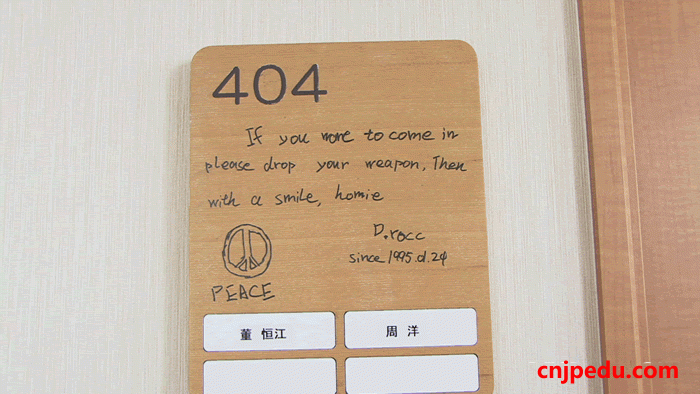 404
If you wone to come in
please drop your weapon, Then
with a smile, homie
D.rocc
since 1995.d.24
PEACE
董 恒江
周 洋
cnjpedu.com